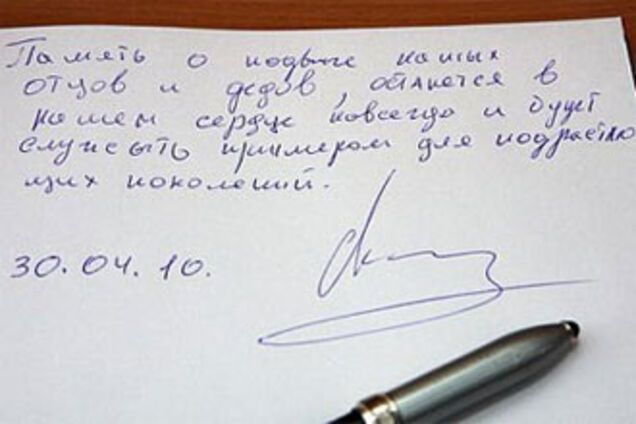 Память о подвиге наших
отцов и дедов, останется в
нашем сердце навсегда и будет
служыть примером для подрастаю
щих поколений.
30.04.10.